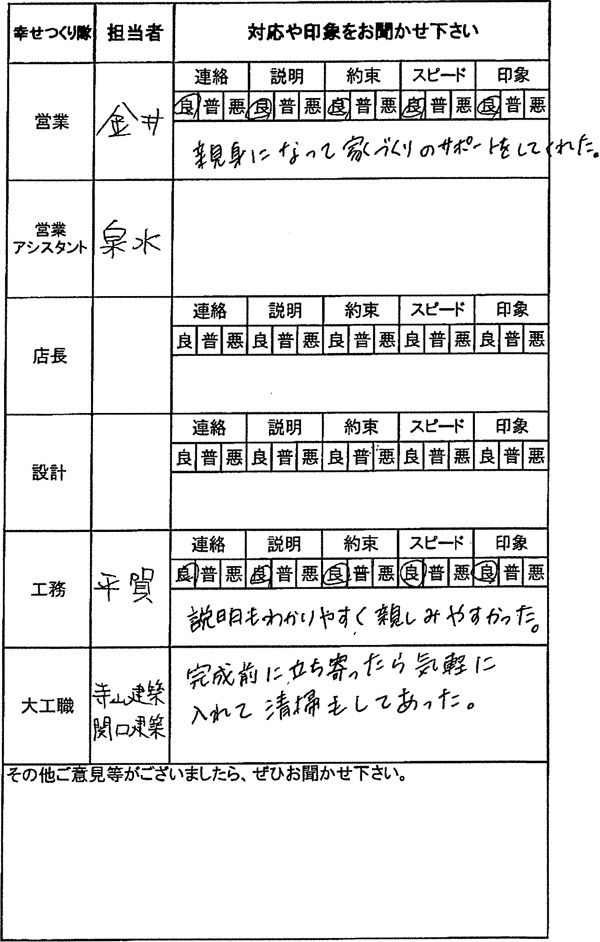 幸せつくり隊 担当者 対応や印象をお聞かせ下さい
営業 金井
連絡 説明 約束 スピード 印象
良 普 悪 良 普 悪 良 普 悪 良 普 悪 良 普 悪
親身になって家づくりのサポートをしてくれた。
営業
アシスタント 泉水
店長
連絡 説明 約束 スピード 印象
良 普 悪 良 普 悪 良 普 悪 良 普 悪 良 普 悪
設計
連絡 説明 約束 スピード 印象
良 普 悪 良 普 悪 良 普 悪 良 普 悪 良 普 悪
工務 平賀
連絡 説明 約束 スピード 印象
良 普 悪 良 普 悪 良 普 悪 良 普 悪 良 普 悪
説明もわかりやすく親しみやすかった。
大工職 寺山建築
関口建築
完成前に立ち寄ったら気軽に
入れて清掃もしてあった。
その他ご意見等がございましたら、ぜひお聞かせ下さい。